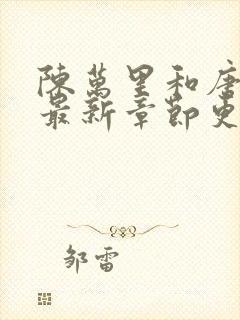 陳萬里和唐
最新章節更
邹雷